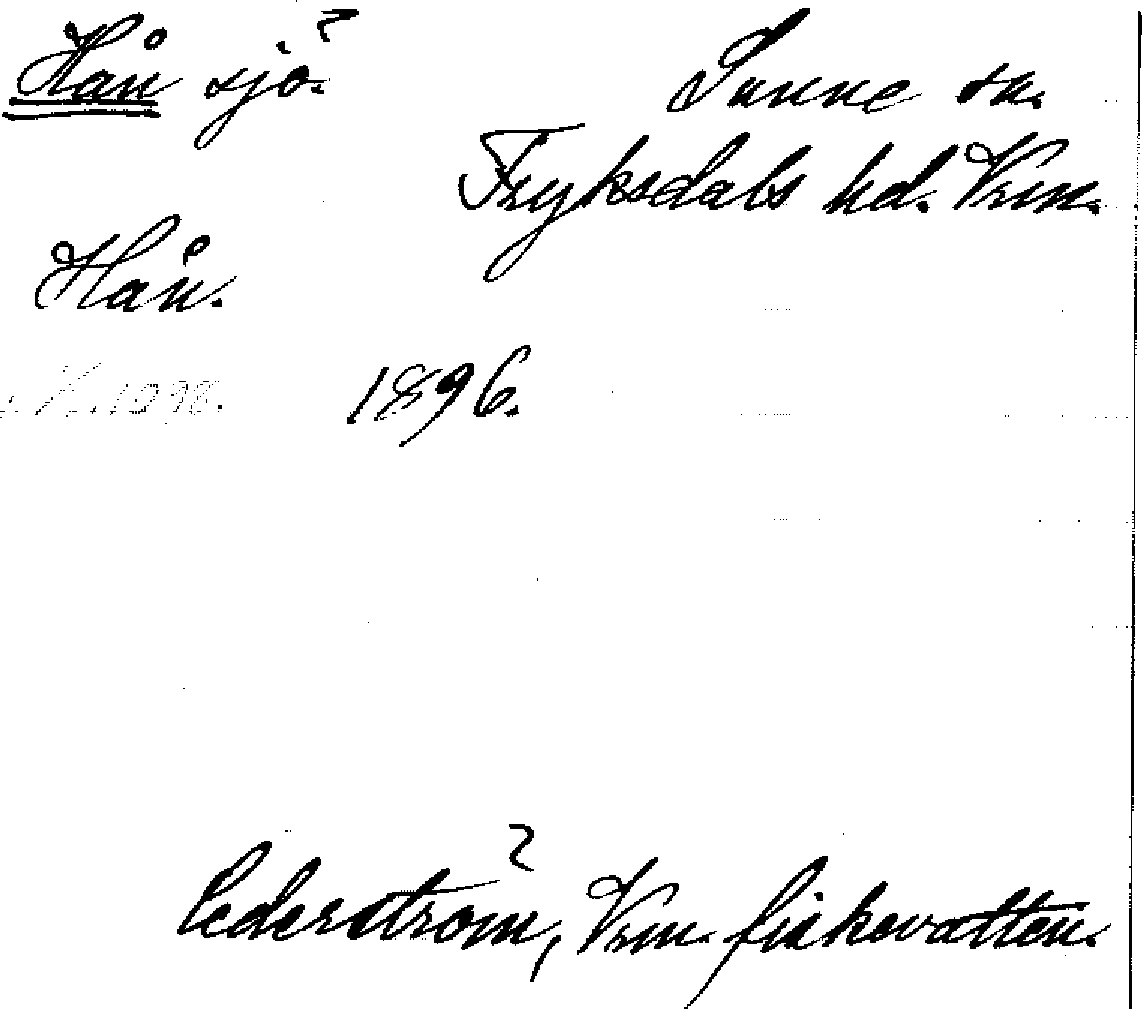 Hån sjö.
Sunne sn.
Fryksdals hd. Vrm.
Hån.
1896.
Cederström, Vrm. fiskevatten.